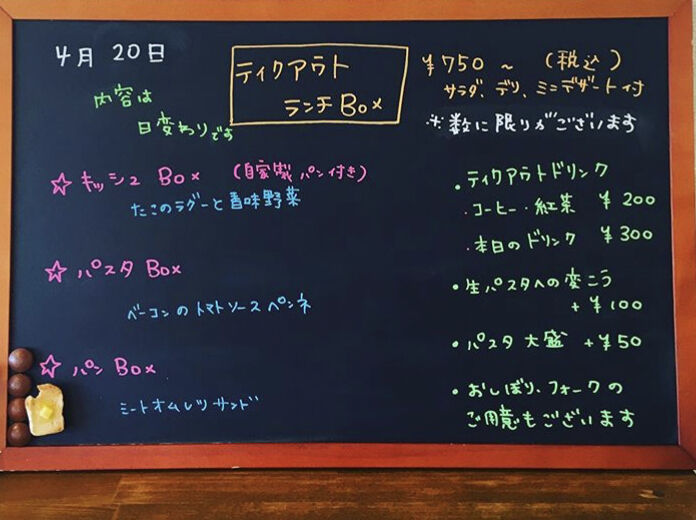 4月 20日
内容は
日変わりです
ティクアウト
ランチBox
¥750 ~ (税込)
サラダ、デリ、ミニデザート付
※数に限りがございます
☆ キッシュ Box (自家製パン付き)
たこのラグーと香味野菜
☆ パスタ Box
ベーコンのトマトソースペンネ
☆ パン Box
ミートオムレツサンド
・ティクアウトドリンク
・コーヒー・紅茶 ¥200
・本日のドリンク ¥300
・生パスタへの変こう
+¥100
・パスタ大盛 +¥50
・おしぼり、フォークの
ご用意もございます